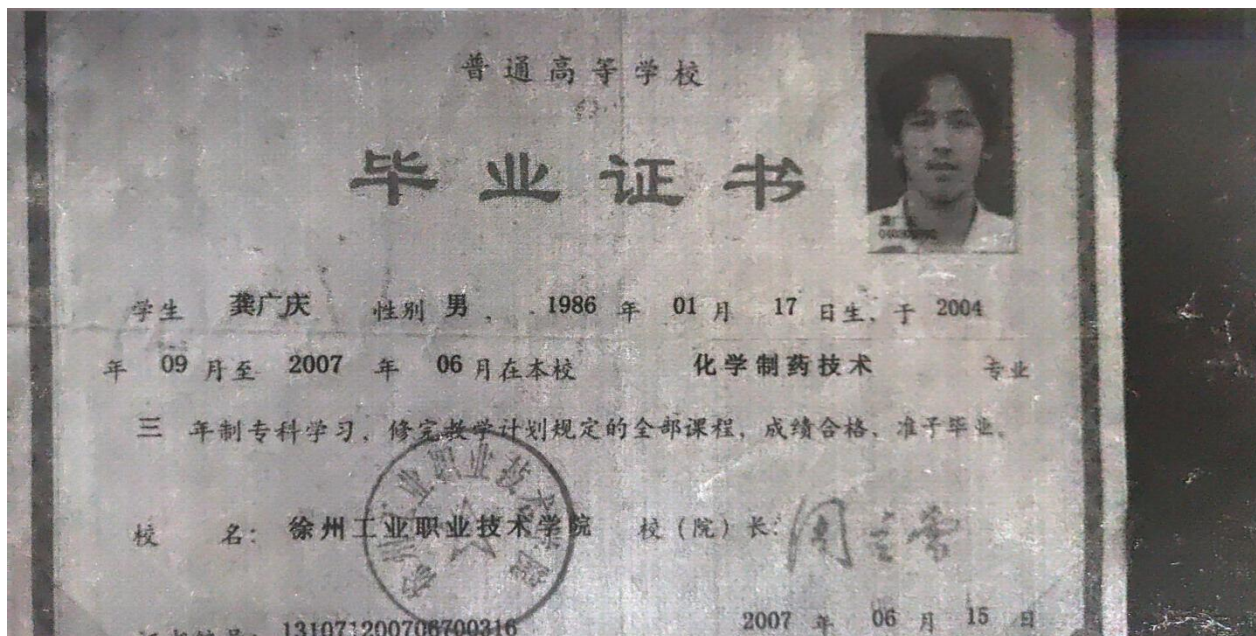 普通高等学校
毕业证书
学生 龚广庆 性别 男 、 1986 年 01 月 17 日生、于 2004
年 09 月至 2007 年 06 月在本校 化学制药技术 专业
三 年制专科学习、修完教学计划规定的全部课程、成绩合格、准予毕业。
校 名: 徐州工业职业技术学院 校(院)长:
证书编号: 131071200706700316 2007 年 06 月 15 日